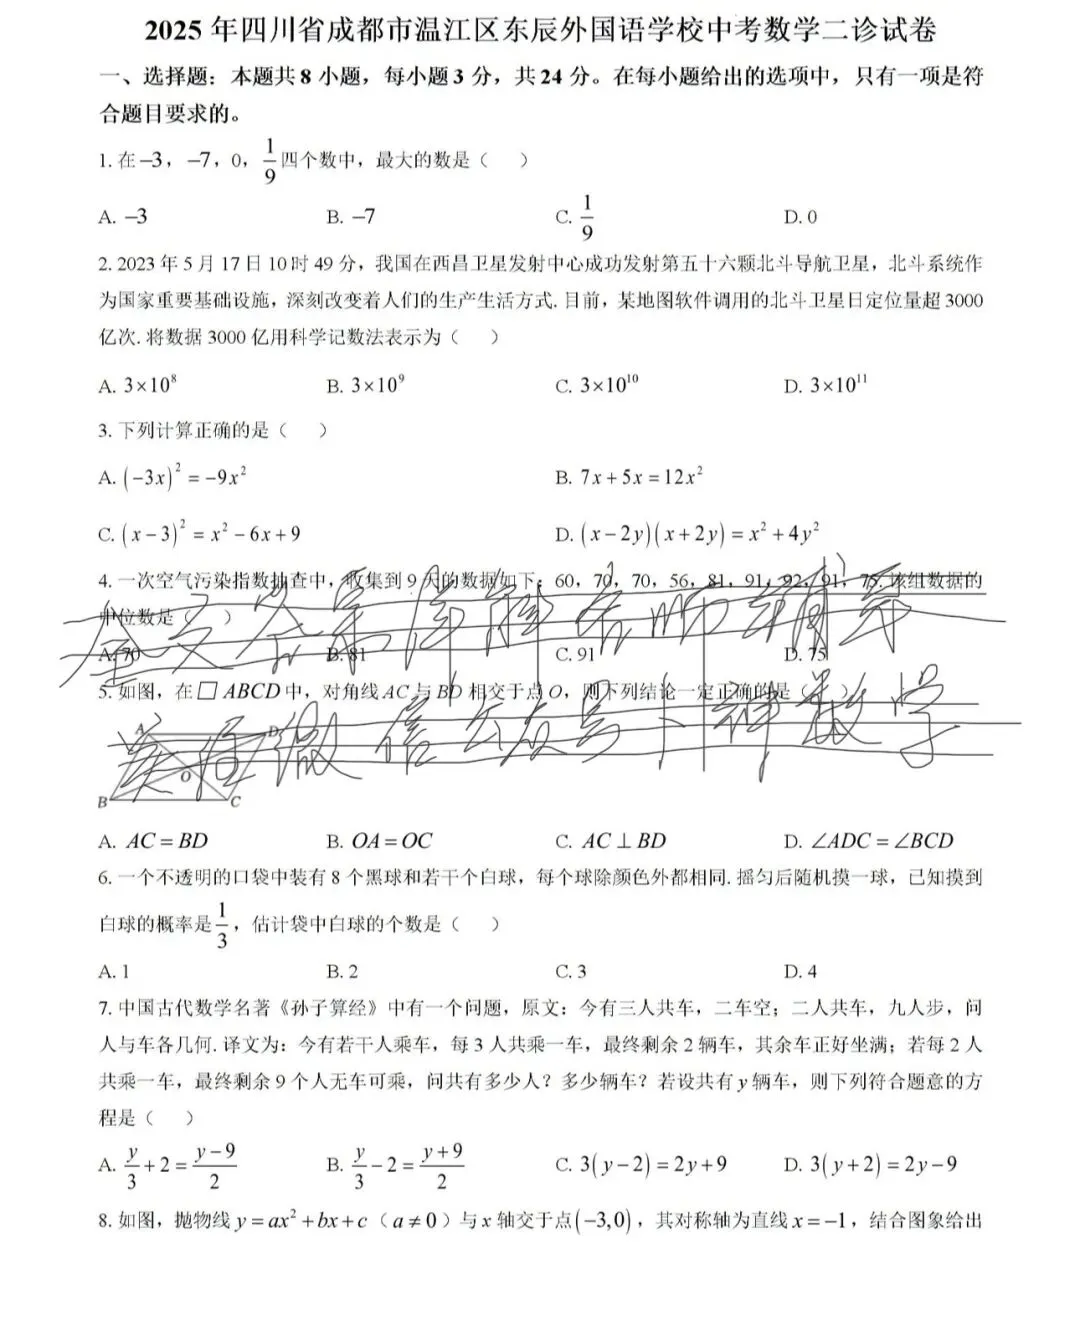 2025 年四川省成都市温江区东辰外国语学校中考数学二诊试卷
一、选择题：本题共 8 小题，每小题 3 分，共 24 分。在每小题给出的选项中，只有一项是符
合题目要求的。
1. 在 −3，−7，0，1/9 四个数中，最大的数是（  ）
A. −3 B. −7 C. 1/9 D. 0
2. 2023 年 5 月 17 日 10 时 49 分，我国在西昌卫星发射中心成功发射第五十六颗北斗导航卫星，北斗系统作
为国家重要基础设施，深刻改变着人们的生产生活方式. 目前，某地图软件调用的北斗卫星日定位量超 3000
亿次. 将数据 3000 亿用科学记数法表示为（  ）
A. 3×10⁸ B. 3×10⁹ C. 3×10¹⁰ D. 3×10¹¹
3. 下列计算正确的是（  ）
A. (−3x)² = −9x² B. 7x + 5x = 12x²
C. (x − 3)² = x² − 6x + 9 D. (x − 2y)(x + 2y) = x² + 4y²
4. 一次空气污染指数抽查中，收集到 9 天的数据如下：60，70，70，56，81，91，92，91，75. 该组数据的
中位数是（  ）
A. 70 B. 81 C. 91 D. 75
5. 如图，在 □ ABCD 中，对角线 AC 与 BD 相交于点 O，则下列结论一定正确的是（  ）
A D
O
B C
A. AC = BD B. OA = OC C. AC ⊥ BD D. ∠ADC = ∠BCD
6. 一个不透明的口袋中装有 8 个黑球和若干个白球，每个球除颜色外都相同. 摇匀后随机摸一球，已知摸到
白球的概率是 1/3，估计袋中白球的个数是（  ）
A. 1 B. 2 C. 3 D. 4
7. 中国古代数学名著《孙子算经》中有一个问题，原文：今有三人共车，二车空；二人共车，九人步，问
人与车各几何. 译文为：今有若干人乘车，每 3 人共乘一车，最终剩余 2 辆车，其余车正好坐满；若每 2 人
共乘一车，最终剩余 9 个人无车可乘，问共有多少人？多少辆车？若设共有 y 辆车，则下列符合题意的方
程是（  ）
A. y/3 + 2 = (y − 9)/2 B. y/3 − 2 = (y + 9)/2 C. 3(y − 2) = 2y + 9 D. 3(y + 2) = 2y − 9
8. 如图，抛物线 y = ax² + bx + c（a ≠ 0）与 x 轴交于点(−3,0)，其对称轴为直线 x = −1，结合图象给出